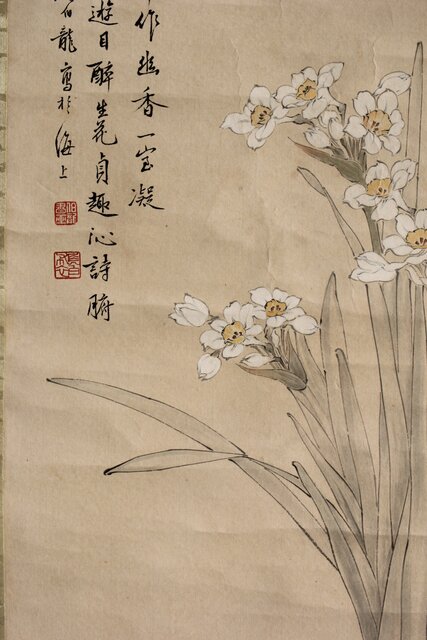 作幽香一室凝
遊目醉生花貞趣沁詩腑
伯龍寫於海上